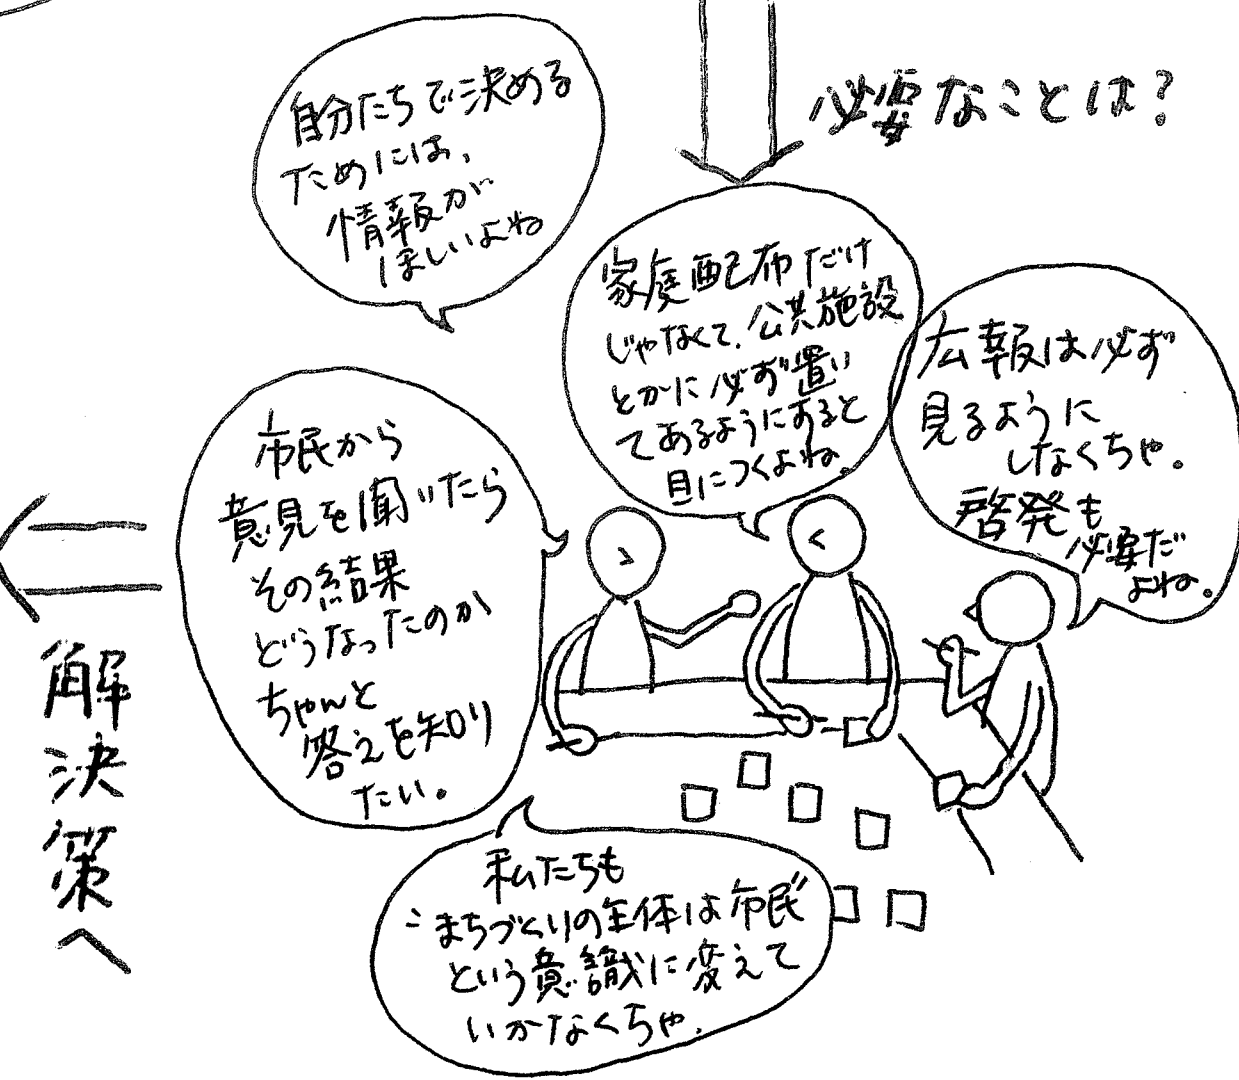 必要なことは？
自分たちで決める
ためには、
情報が
ほしいよね
家庭配布だけ
じゃなくて、公共施設
とかに必ず置い
てあるようにすると
目につくよね。
広報は必ず
見るように
しなくちゃ。
啓発も
必要だ
よね。
市民から
意見を聞いたら
その結果
どうなったのか
ちゃんと
答えを知り
たい。
私たちも
"まちづくりの主体は市民"
という意識に変えて
いかなくちゃ。
解決策へ